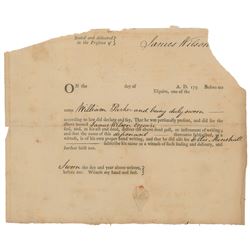 Sealed and delivered
in the Presence of
James Wilson
ON the day of A. D. 179 Before me
Esquire, one of the
came William Parke and being duly sworn
according to law did declare and say, That he was personally present, and did see the
above named James Wilson Esquire
seal, and as his act and deed, deliver the above deed poll, or instrument of writing; and
that the name of this deponent thereunto subscribed, as a
witness, is of his own hand writing; and that he did also see
subscribe his name as a witness of such sealing and delivery, and
further saith not.
Sworn the day and year above written,
before me. Witness my hand and seal.